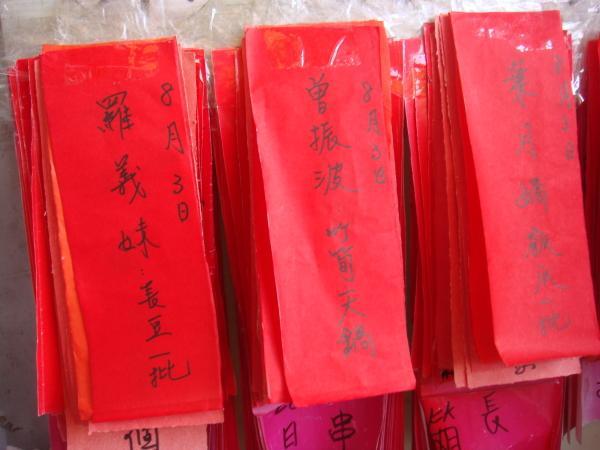 8月3日
羅義妹:長豆一批
8月3日
曾振波:竹筍天鍋
月3日
葉月嬌飲瓜一批
個
日
串
長